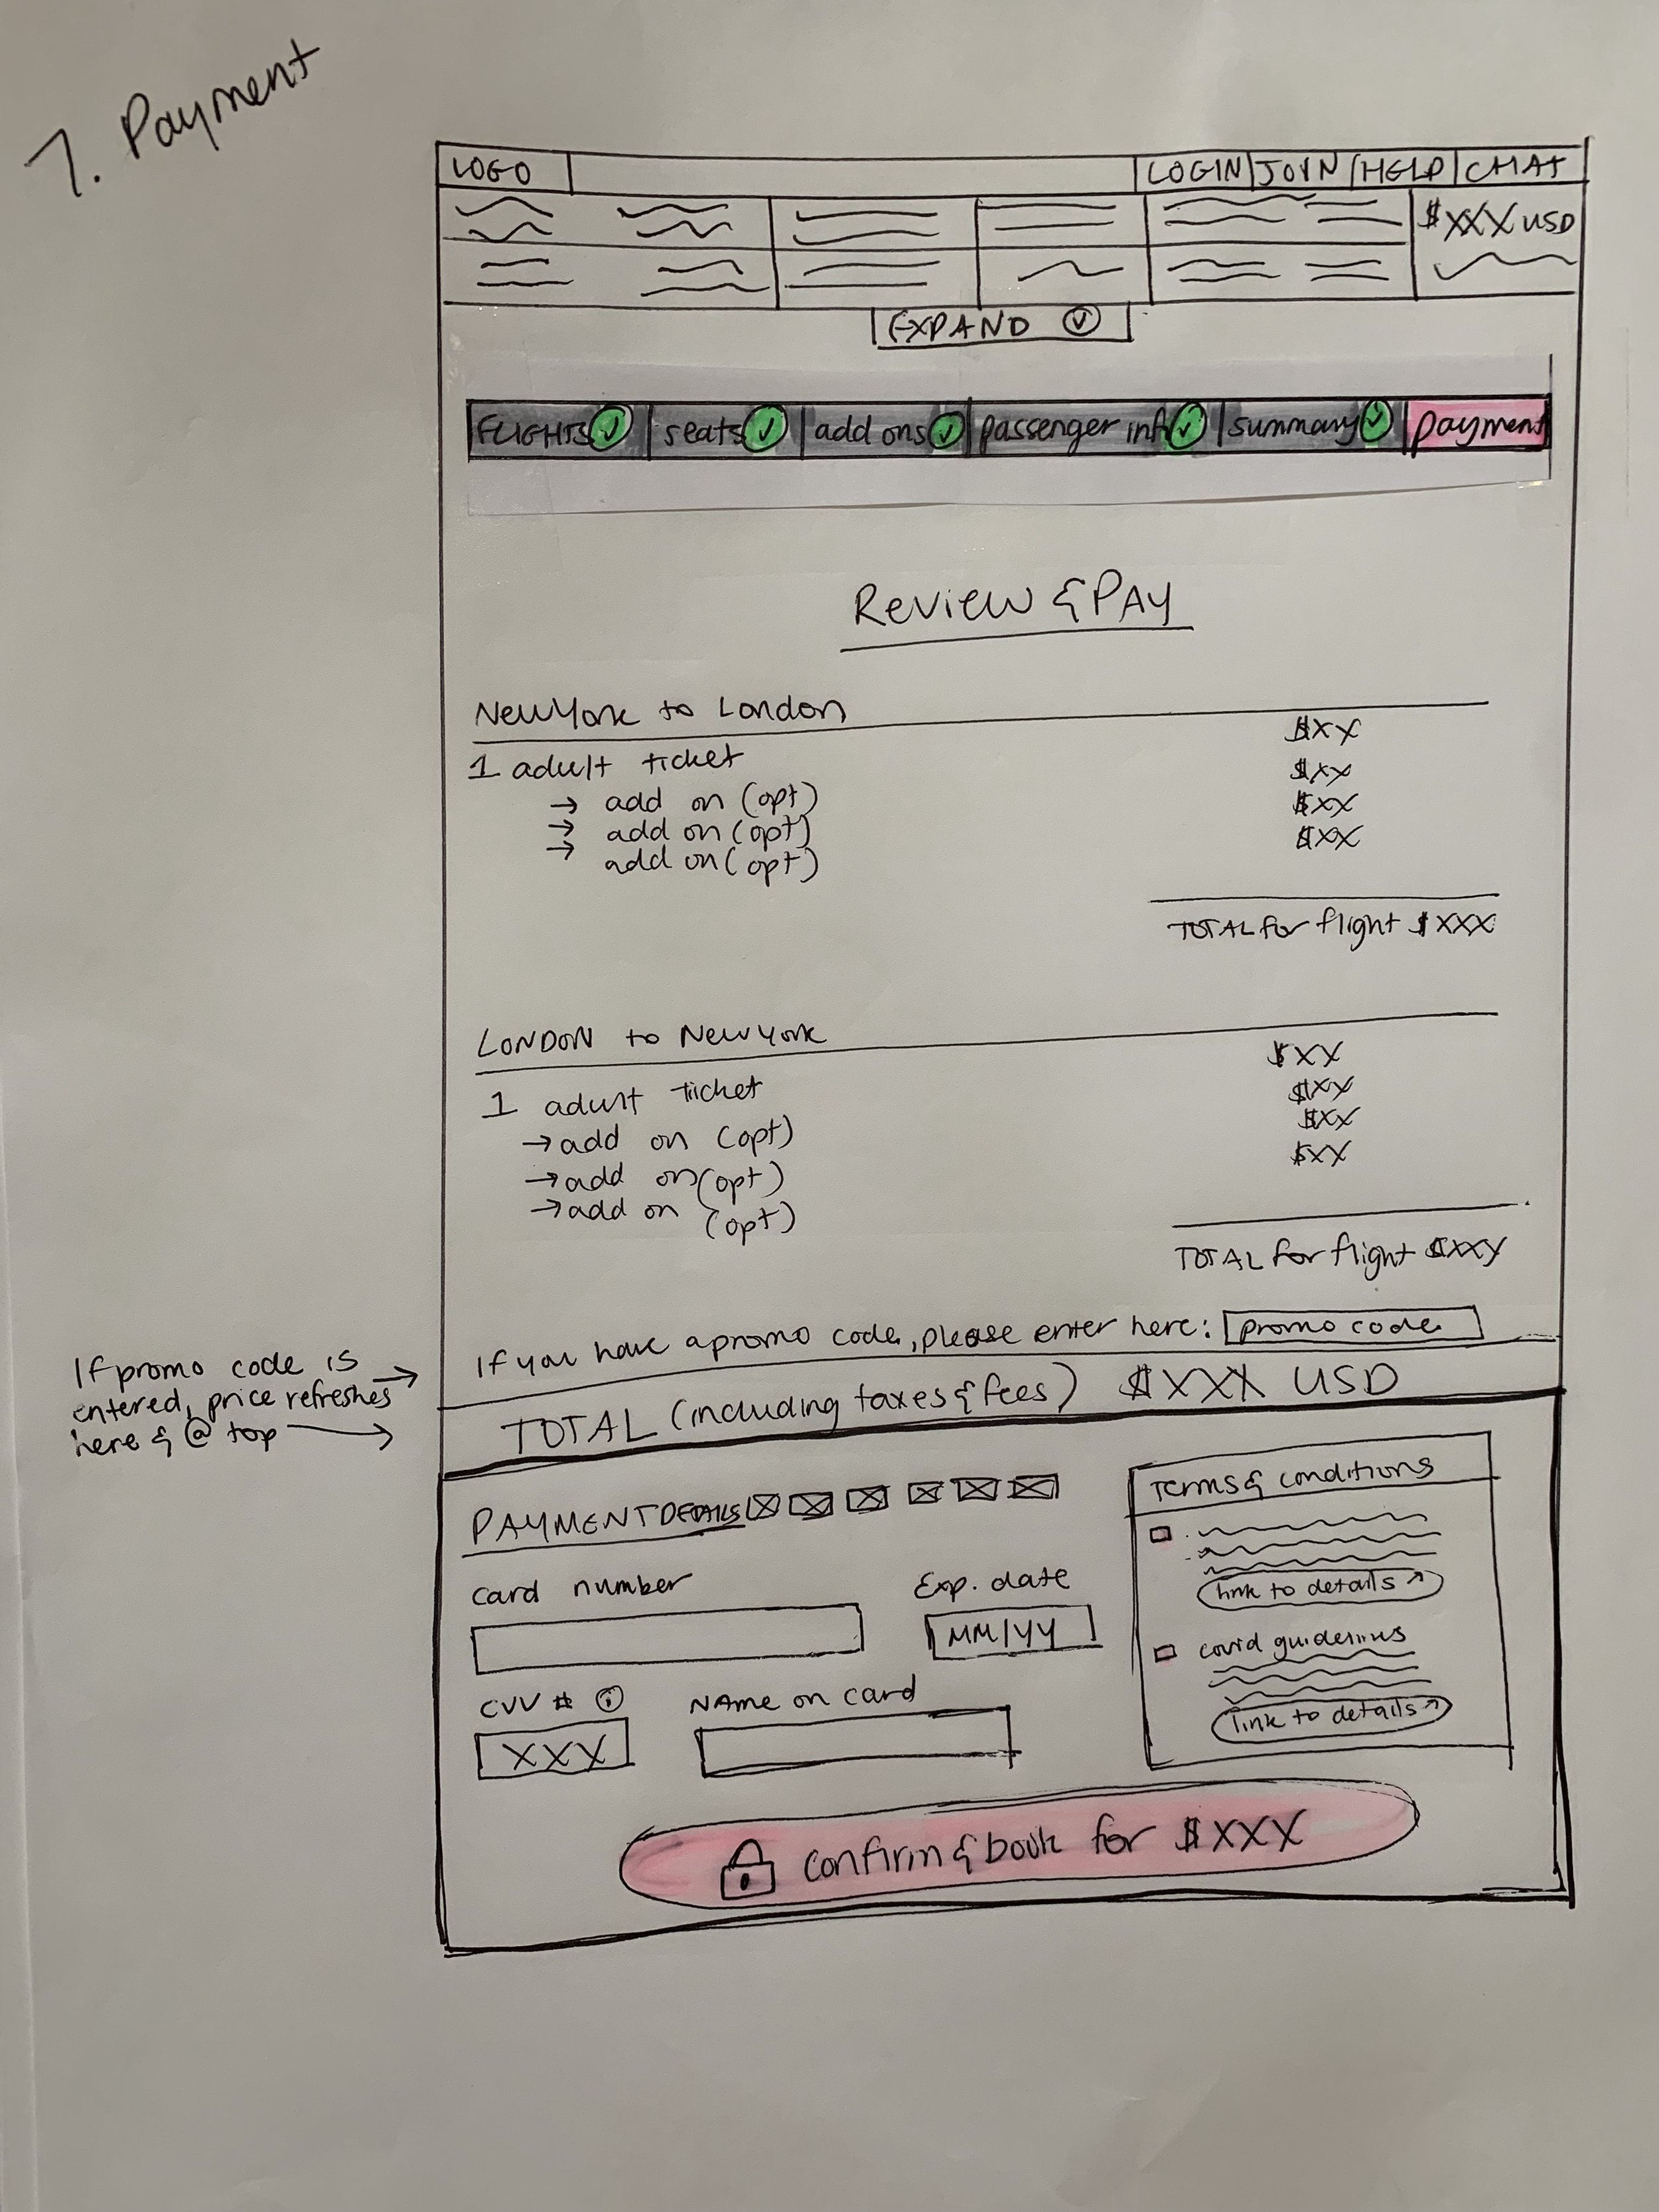 7. Payment
LOGO LOGIN JOIN HELP CHAT
$XXX USD
EXPAND
FLIGHTS seats add ons passenger inf summary payment
Review & PAY
New York to London
$XX
1 adult ticket
$XX
→ add on (opt)
$XX
→ add on (opt)
$XX
→ add on (opt)
TOTAL for flight $XXX
LONDON to New York
$XX
1 adult ticket
$XX
→ add on (opt)
$XX
→ add on (opt)
$XX
→ add on (opt)
TOTAL for flight $XXX
If you have a promo code, please enter here: promo code
If promo code is →
entered, price refreshes
here & @ top →
TOTAL (including taxes & fees) $XXX USD
PAYMENT DETAILS
Card number Exp. date
MM/YY
CVV # i Name on card
XXX
Terms & conditions
link to details ↗
covid guidelines
link to details ↗
confirm & book for $XXX